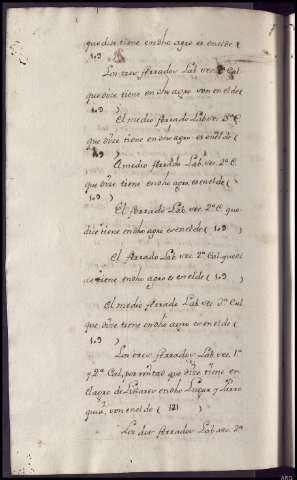 que dice tiene en dho agro es en el de (
109 )
Los tres ferrados Lab. vec. 2ª Cal.
que dice tiene en dho agro son en el de (
)
El medio ferrado Lab. vec. 2ª C.
que dice tiene en dho agro es en el de (
109 )
El medio ferrado Lab. vec. 2ª C.
que dice tiene en dho agro es en el de (
109 )
El ferrado Lab. vec. 2ª C. que
dice tiene en dho agro es en el de ( 109 )
El ferrado Lab. vec. 2ª Cal. que di
ce tiene en dho agro es en el de ( 109 )
El medio ferrado Lab. vec. 2ª Cal.
que dice tiene en dho agro es en el de (
109 )
Los tres ferrados Lab. vec. 1ª
y 2ª Cal. por mitad que dice tiene en
el agro de Liñares en dho Lugar y Parro
quia, son en el de ( 121 )
Los dos ferrados Lab. vec. 2ª